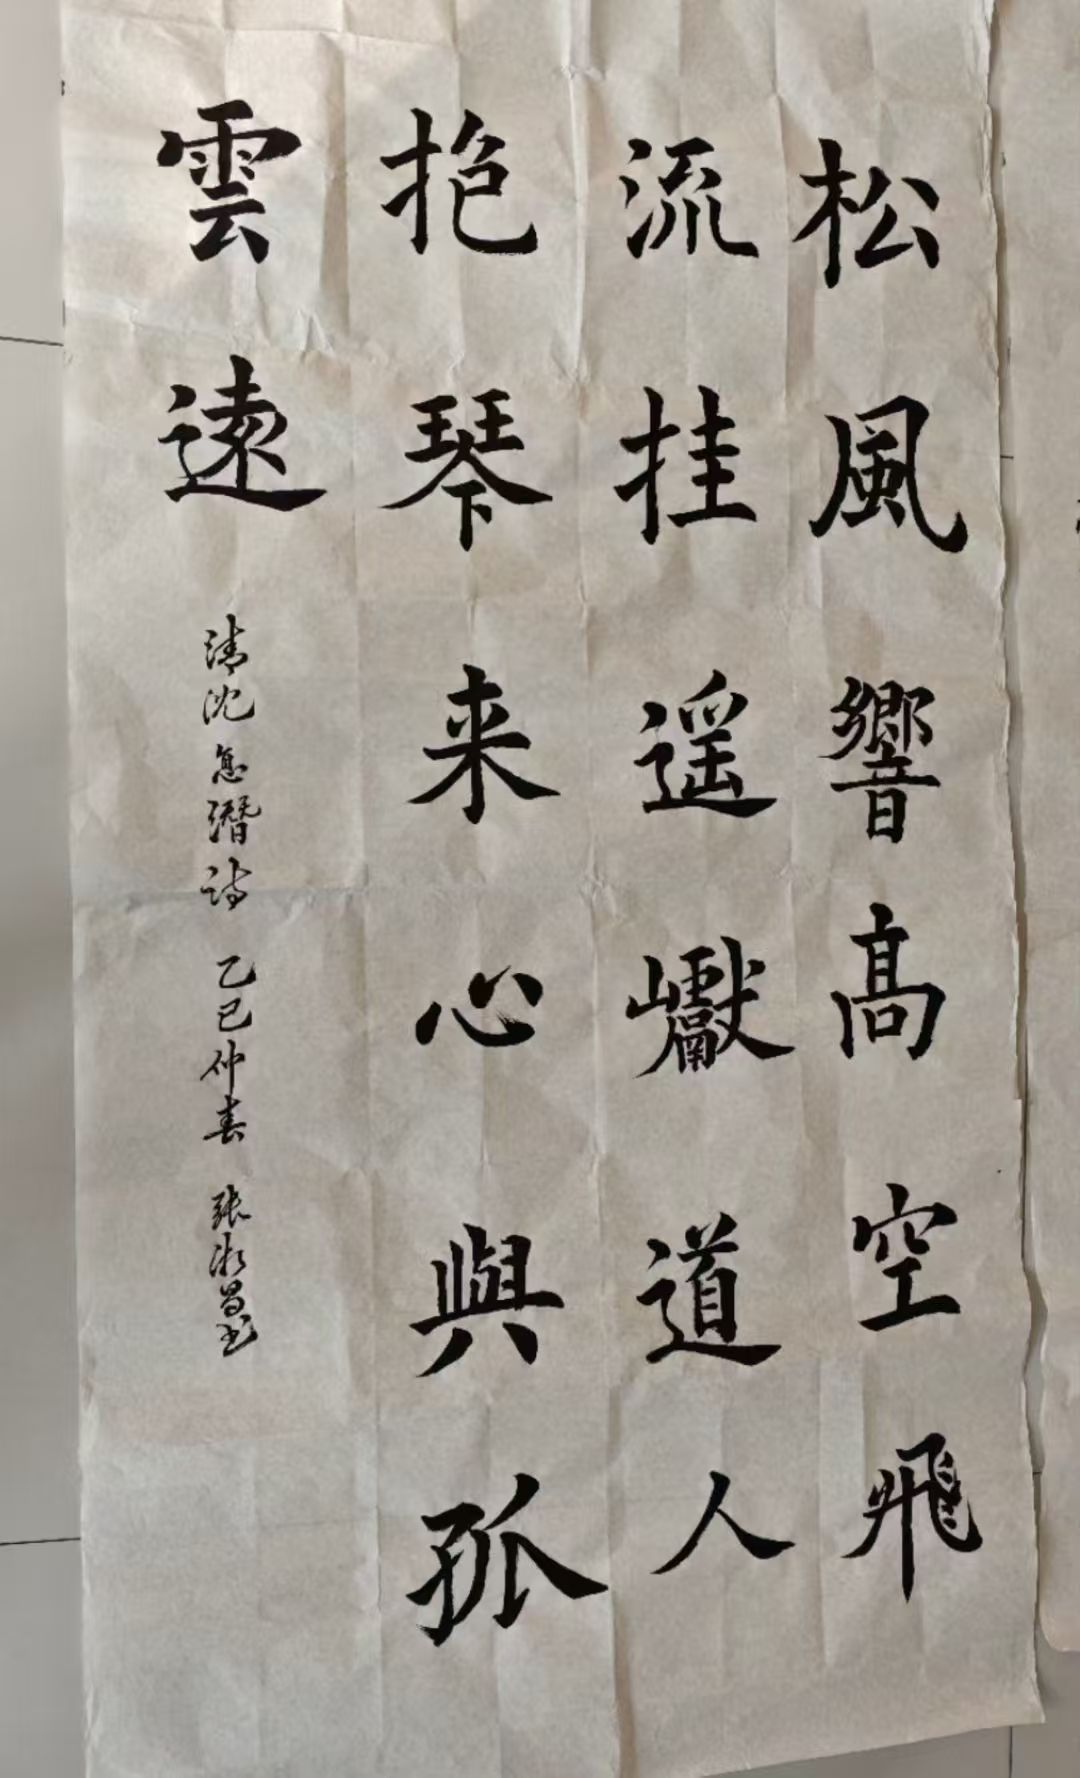 松風響高空飛
流挂遥巘道人
抱琴来心與孤
雲遠
清沈 潛詩 乙巳仲春 張